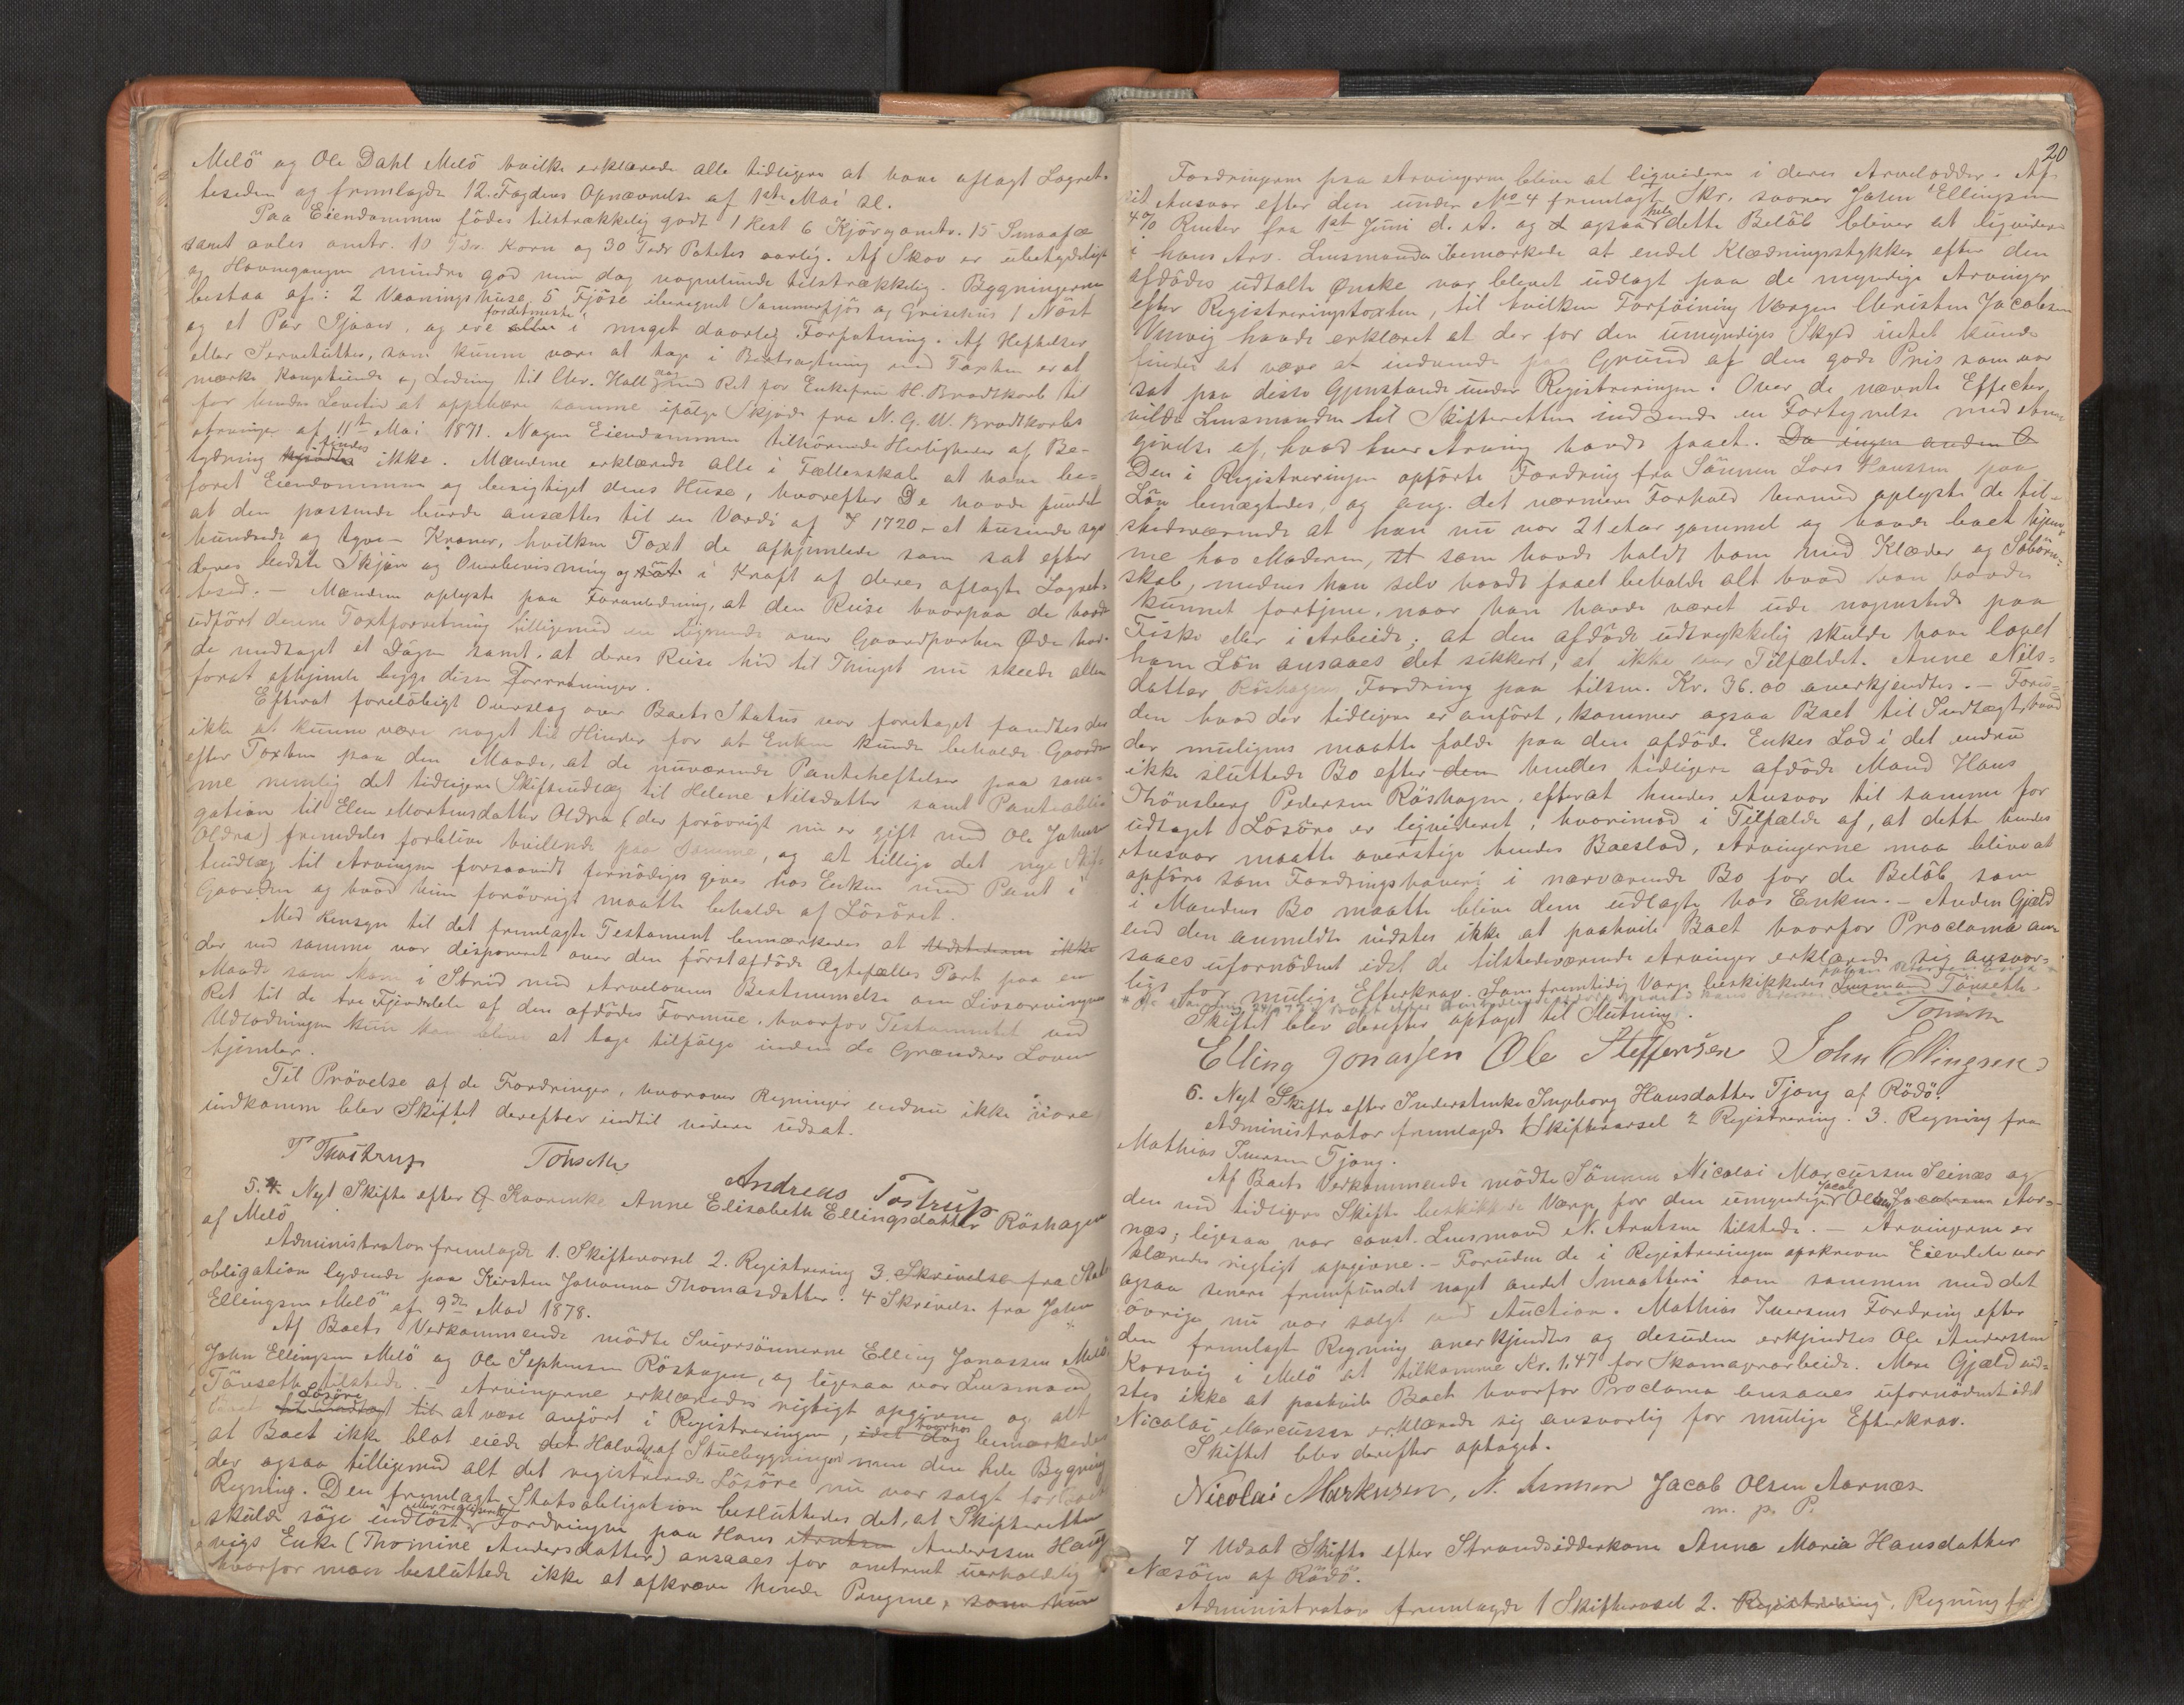 Melö og Ole Dahl Melö hvilke erklærede alle tidligere at have aflagt Lagret-
teseden og fremlagde 12. Fogdens Opnævnelse af 1ste Mai sl.
Paa Eiendommen födes tilstrækkelig godt 1 Hest 6 Kjör og omtr. 15 Smaafæ
samt avles omtr. 10 Tdr. Korn og 30 Tdr Poteter aarlig. Af Skov er ubetydeligt
og Havnegangen mindre god men dog nogenlunde tilstrækkelig. Bygningerne
bestaa af: 2 Vaaningshuse, 5 Fjöse iberegnet Sommerfjös og Grisehus 1 Nöst
og et Par Sjaaer, og ere fordetmeste i meget daarlig Forfatning. Af Heftelser
eller Servitutter, som kunne være at tage i Betragtning ved Taxten er at
mærke Kaarpkunde og Ledning til Chr. Holl og med Ret for Enkefru H. Brodtkorb til
for hendes Levetid at oppebære samme ifölge Skjöde fra N. G. W. Brodtkorbs
Arvinger af 11te Mai 1871. Nogen Eiendommen tilhörende Herligheder af Be-
tydning findes ikke. Mændene erklærede alle i Fællesskab at have be-
faret Eiendommen og besigtiget dens Huse, hvorefter De havde fundet
at den passende burde ansættes til en Værdi af 1720 - et tusende syv
hundrede og tyve - Kroner, hvilken Taxt de afhjemlede som sat efter
deres bedste Skjön og Overbevisning og i Kraft af deres aflagte Lagret-
tesed. - Mændene oplyste paa Foranledning, at den Reise hvorpaa de havde
udfört denne Taxtforretning tilligemed en lignende over Gaardparten Öde hav-
de medtaget et Dögn samt, at deres Reise hid til Thinget nu skeede alene
forat afhjemle begge disse Forretninger.
Efterat forelöbigt Overslag over Boets Status var foretaget fandtes der
ikke at kunne være noget til Hinder for at Enken kunde beholde Gaarden
efter Taxten paa den Maade, at de nuværende Pantheftelser paa sam-
me nemlig det tidligere Skifteudlæg til Helene Nilsdatter samt Pantobli-
gation til Elen Mortensdatter Oldra (der forövrigt nu er gift med Ole Johns
Oldra) fremdeles forblive hvilende paa samme, og at tillige det nye Skif-
teudlæg til Arvingen forsaavidt fornödiges gives hos Enken med Pant i
Gaarden og hvad hun forövrigt maatte beholde af Lösöret.
Med Hensyn til det fremlagte Testament bemærkedes at
der ved samme var disponeret over den förstafdöde Ægtefælles Part paa en
Maade som kom i Strid med Arvelovens Bestemmelse om Livsarvingers
Ret til de tre Fjerdedele af den afdödes Formue, hvorfor Testamentet ved
Udlodningen kun kan blive at tage tilfölge inden de Grændser Loven
hjemler.
Til Prövelse af de Fordringer, hvorover Regninger endnu ikke vare
indkomne blev Skiftet derefter indtil videre udsat.
P Thostrup Tönseth Andreas Tostrup
5. Nyt Skifte efter Kaarenke Anne Elisabeth Ellingsdatter Röshagen
af Melö
Administrator fremlagde 1. Skiftevarsel 2. Registrering 3. Stats
obligation lydende paa Kirsten Johanna Thomasdatter. 4 Skrivelse fra John
Ellingsen Melö af 9de Mad 1878.
Af Boets Vedkommende mödte Svigersönnerne Elling Jonassen Melö
John Ellingsen Melö og Ole Stephensen Röshagen, og ligesaa var Lensmand
Tönseth tilstede. - Arvingerne erklæredes rigtigt opgivne og alt
Boet Lösöre til at være anfört i Registreringen, hvorhos bemærkedes
at Boet ikke blot eiede det Halve af Stuebygningen men den hele Bygning
der ogsaa tilligemed alt det registrerede Lösöre nu var solgt for Boets
Regning. Den fremlagte Statsobligation besluttedes det, at Skifteretten
skulde söge indlöst Fordringen paa Hans Anderssen Haug-
vigs Enke (Thomine Andersdatter) ansaaes for omtrent uerholdelig
hvorfor man besluttede ikke at afkræve hende Pengene, som hun
20
Fordringerne paa Arvingerne bliver at ligvidere i deres Arvelodder. Af
sit Ansvar efter den under No 4 fremlagte Skr. svarer John Ellingsen
4% Renter fra 1ste Juni d. A. og ogsaa hele dette Belöb bliver at ligvidere
i hans Arv. Lensmanden bemærkede at endel Klædningsstykker efter den
afdödes udtalte Önske var blevet udlagt paa de myndige Arvinger
efter Registreringstaxten, til hvilken Forföining Værgen Christen Jacobsen
Unvig havde erklæret at der for den umyndiges Skyld intet kunde
findes at være at indvende paa Grund af den gode Pris som var
sat paa disse Gjenstande under Registreringen. Over de nævnte Effecter
vilde Lensmanden til Skifteretten indsende en Fortegnelse med Anm
givelse af, hvad hver Arving havde faaet. Da ingen anden G
Den i Registreringen opförte Fordring fra Sönnen Lars Hanssen paa
Lön benægtedes, og ang. det nærmere Forhold hermed oplyste de til-
stedeværende at han nu var 21 Aar gammel og havde boet hjem-
me hos Moderen, som havde holdt ham med Klæder og Söbörn-
skab, medens han selv havde faaet beholde alt hvad han havde
kunnet fortjene, naar han havde været ude nogensteds paa
Fiske eller i Arbeide; at den afdöde udtrykkelig skulde have lovet
ham Lön ansaaes det sikkert, at ikke var Tilfældet. Anne Nils-
datter Röshagens Fordring paa tilsm. Kr. 36.00 anerkjendtes. - Foru-
den hvad der tidligere er anfört, kommer ogsaa Boet til Indtægt, hvad
der muligens maatte falde paa den afdöde Enkes Lod i det endnu
ikke sluttede Bo efter hendes tidligere afdöde Mand Hans
Thönsberg Pedersen Röshagen, efterat hendes Ansvar til samme for
udtaget Lösöre er ligvideret; hvorimod i Tilfælde af, at dette hendes
Ansvar maatte overstige hendes Boeslod, Arvingerne maa blive at
opföre som Fordringshavere i nærværende Bo for de Belöb som
i Mandens Bo maatte blive dem udlagte hos Enken. - Anden Gjæld
end den anmeldte vidstes ikke at paahvile Boet hvorfor Proclama an-
saaes ufornödent idet de tilstedeværende Arvinger erklærede sig ansvar-
lige for mulige Efterkrav. Som fremtidig Værge beskikkedes Lensmand Tönseth.
Skiftet blev derefter optaget til Slutning. Tönseth
Elling Jonassen Ole Steffensen John Ellingsen
6. Nyt Skifte efter Inderstenke Ingeborg Hansdatter Tjong af Rödö.
Administrator fremlagde 1 Skiftevarsel 2 Registrering. 3. Regning fra
Mathias Iversen Tjong.
Af Boets Vedkommende mödte Sönnen Nicolai Marcussen Seines og
den ved tidligere Skifte beskikkede Værge for den umyndige Jacob Olsen Aar-
næs; ligesaa var const. Lensmand N. Arntsen tilstede. - Arvingerne er
klæredes rigtigt opgivne. - Foruden de i Registreringen opskrevne Eiendele var
ogsaa senere fremfundet noget andet Smaatteri som sammen med det
övrige nu var solgt ved Auction. Mathias Iversens Fordring efter
den fremlagte Regning anerkjendtes og desuden erkjendtes Ole Anderssen
Korsvig i Melö at tilkomme Kr. 1.47 for Skomagerarbeide. Mere Gjæld vid-
stes ikke at paahvile Boet hvorfor Proclama ansaaes ufornödent idet
Nicolai Marcussen erklærede sig ansvarlig for mulige Efterkrav.
Skiftet blev derefter optaget.
Nicolai Markusen, N. Arntsen Jacob Olsen Aarnæs
m. p. P.
7 Udsat Skifte efter Strandsidderkone Anna Maria Hansdatter
Næsöen af Rödö.
Administrator fremlagde 1 Skiftevarsel 2. Registrering, Regning fr